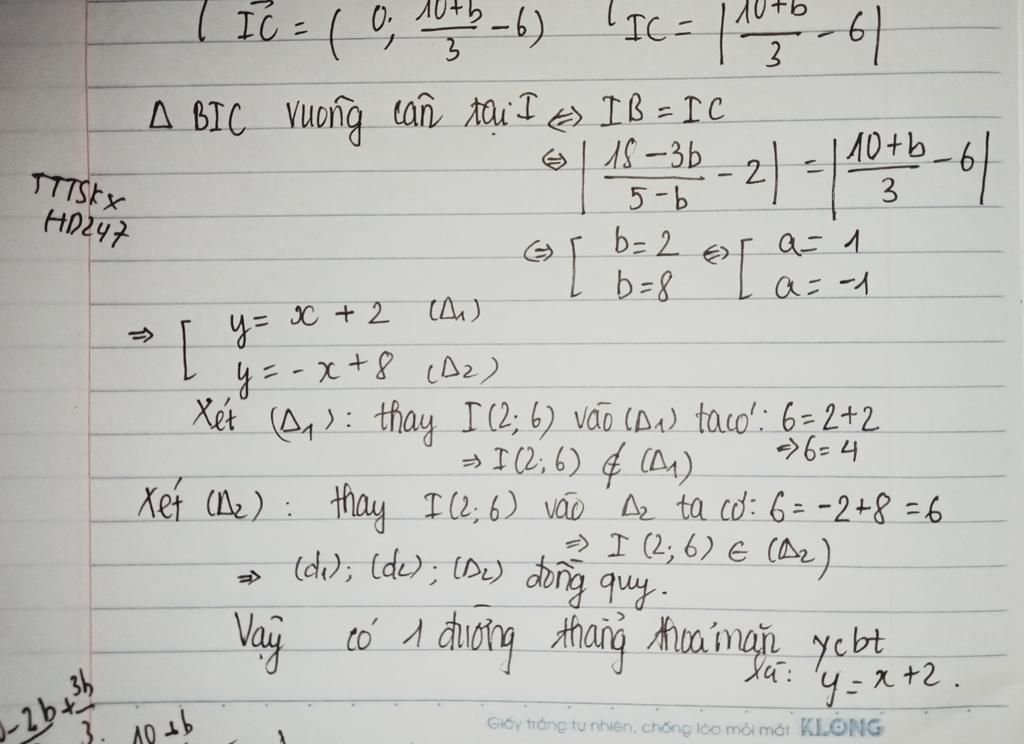 IC = ( 0; (10+b)/3 − 6)   IC = |(10+b)/3 − 6|
Δ BIC vuông cân tại I ⇔ IB = IC
⇔ |(18−3b)/(5−b) − 2| = |(10+b)/3 − 6|
TTTSkx
HD247
⇔ [ b=2 ⇔ [ a= 1
b=8 a= −1
⇒ [ y= x + 2 (Δ1)
y= − x + 8 (Δ2)
Xét (Δ1): thay I(2; 6) vào (Δ1) ta có: 6= 2+2
⇒6= 4
⇒ I(2; 6) ∉ (Δ1)
Xét (Δ2): thay I(2; 6) vào Δ2 ta có: 6= −2+8 = 6
⇒ I(2; 6) ∈ (Δ2)
⇒ (d1); (d2); (Δ2) đồng quy.
Vậy có 1 đường thẳng thoả mãn ycbt
là: y= x+2.
− 2b + 3b/3.
10 +b
Giấy trắng tự nhiên, chống lóa mỏi mắt KLONG